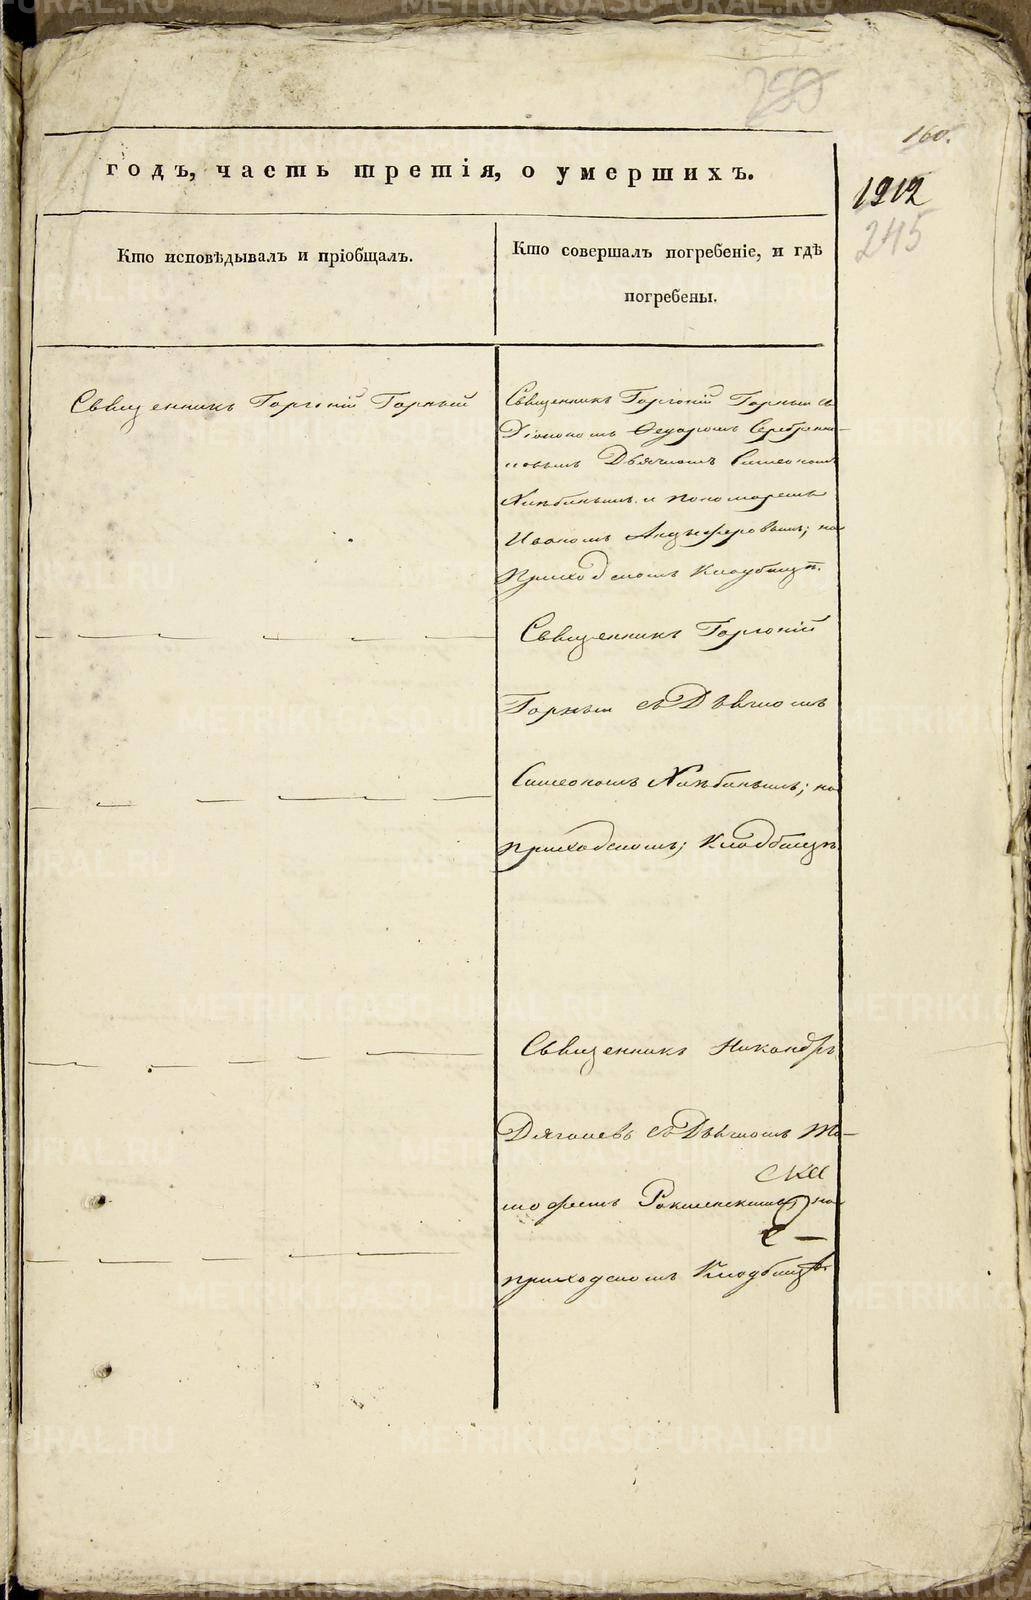 250
160.
годъ, часть третія, о умершихъ.
1912
245
Кто исповѣдывалъ и пріобщалъ.
Кто совершалъ погребеніе, и гдѣ
погребены.
Священникъ Горгоній Горный
Священникъ Горгоній Горный съ
Діакономъ Ѳедоромъ Серебренни-
ковымъ Дьячкомъ Симеономъ
Хлѣбинымъ и пономаремъ
Иваномъ Анцыферовымъ; на
Приходскомъ Кладбищѣ.
Священникъ Горгоній
Горный съ Дьячкомъ
Симеономъ Хлѣбинымъ; на
приходскомъ; Кладбищѣ
Священникъ Никандръ
Дягилевъ съ Дьячкомъ Ти-
мофеемъ на
приходскомъ Кладбищѣ
METRIKI.GASO-URAL.RU